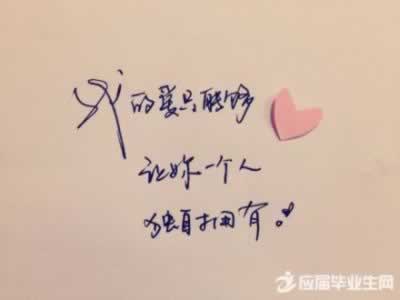 我的愛只能够
让妳一个人
独自拥有!
应届毕业生网